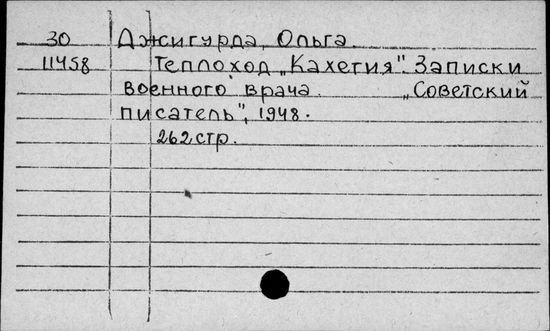 30 Джигурда, Ольга.
11458 Теплоход „Кахетия". Записки
военного врача. „Советский
писатель", 1948.
262 стр.